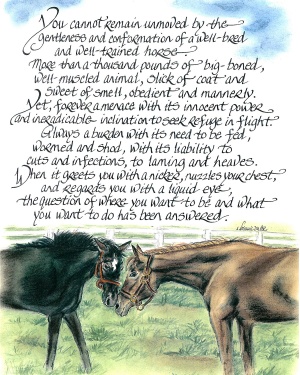 You cannot remain unmoved by the
gentleness and conformation of a well-bred
and well-trained horse-
More than a thousand pounds of big-boned,
well-muscled animal, slick of coat and
sweet of smell, obedient and mannerly.
Yet, forever a menace with its innocent power
and ineradicable inclination to seek refuge in flight
Always a burden with its need to be fed,
wormed and shod, with its liability to
cuts and infections, to laming and heaves.
When it greets you with a nicker, nuzzles your chest,
and regards you with a liquid eye,
the question of where you want to be and what
you want to do has been answered.